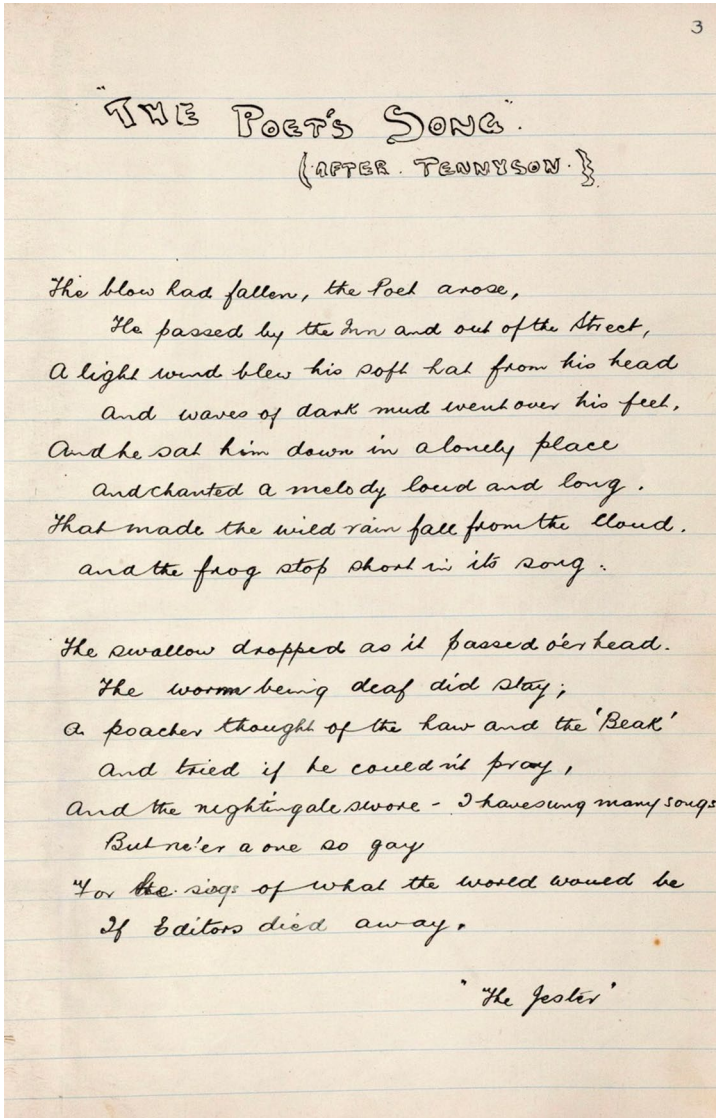 3
"THE POET'S SONG".
(AFTER. TENNYSON.)
The blow had fallen, the Poet arose,
He passed by the Inn and out of the Street,
A light wind blew his soft hat from his head
And waves of dark mud went over his feet,
And he sat him down in a lonely place
And chanted a melody loud and long.
That made the wild rain fall from the Cloud.
And the frog stop short in its song:
The swallow dropped as it passed o'er head.
The worm being deaf did stay;
A poacher thought of the Law and the 'Beak'
And tried if he couldn't pray,
And the nightingale swore - I have sung many songs
But ne'er a one so gay
"For he sings of what the world would be
If Editors died away.
"The Jester"